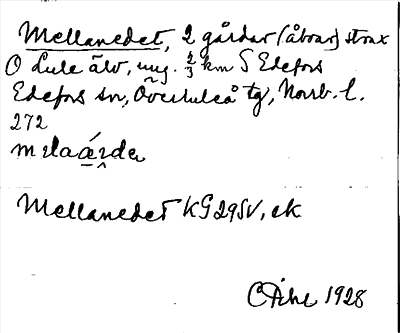 Mellanedet, 2 gårdar (åbvar) strax
O Lule älv, ung. 2/3 km S Edefors
Edefors sn, Överluleå tg, Norrb. l.
272
Mellanedet KG 29SV, ek
1928